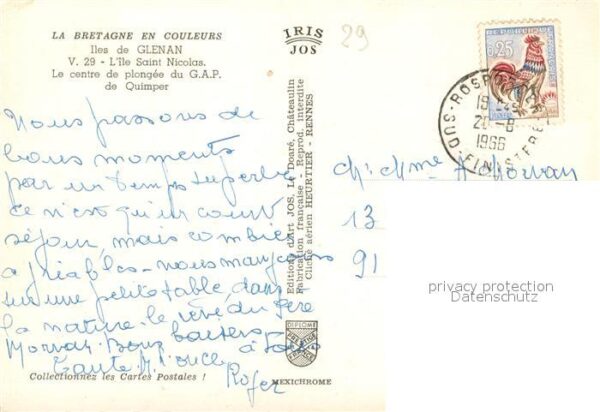 LA BRETAGNE EN COULEURS
Iles de GLENAN
V. 29 - L'île Saint Nicolas.
Le centre de plongée du G.A.P.
de Quimper
IRIS
JOS
29
REPUBLIQUE
0,25
19
20-8
1966
FINISTERE
Nous passons de
bons moments
par un temps superbe
ce n'est qu'un court
séjour, mais combien
agréables - nous mangeons
sur une petite table dans
la nature. le rêve du Père
Morvan. Bons baisers
à tous
Tante M. oncle
Roger
Editions d'Art JOS, Le Doaré, Châteaulin
Fabrication française - Reprod. interdite
Cliché aérien HEURTIER - RENNES
M. Mme Morvan
13
91
privacy protection
Datenschutz
DIPLOME
PRESTIGE
MEXICHROME
Collectionnez les Cartes Postales !